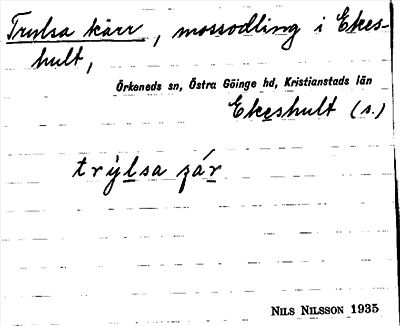 Trulsa kärr, mossodling i Ekes-
hult,
Örkeneds sn, Östra Göinge hd, Kristianstads län
Ekeshult (s.)
trỳlsa ʒár
NILS NILSSON 1935